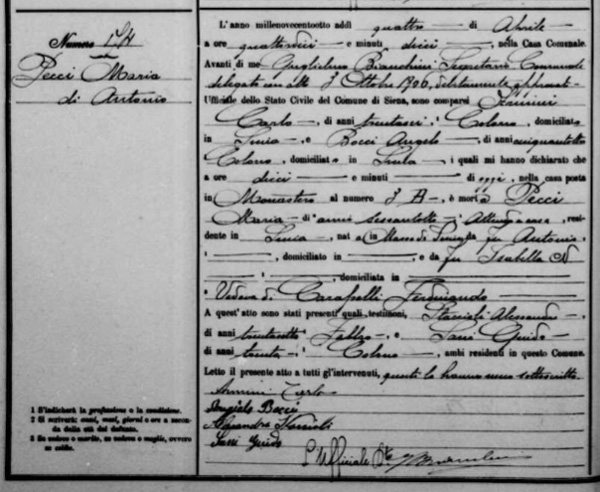 Numero
Pecci Maria
di Antonio
L'anno millenovecentootto addì quattro di Aprile
a ore quattordici e minuti dieci, nella Casa Comunale.
Avanti di me Guglielmo Bianchini Segretario Comunale
delegato con atto 3 Ottobre 1906, debitamente approvato
Uffiziale dello Stato Civile del Comune di Siena, sono comparsi
Carlo, di anni trentasei, Colono, domiciliato
in Siena, e Bocci Angelo, di anni cinquantotto
Colono, domiciliato in Siena, i quali mi hanno dichiarato che
a ore dieci e minuti di oggi, nella casa posta
in Monastero al numero 3 A, è morta Pecci
Maria di anni sessantotto, Attend. a casa, resi-
dente in Siena, nata in Massa di Siena da fu Antonio
, domiciliato in, e da fu Isabella N
, domiciliata in
Vedova di Carapelli Ferdinando
A quest'atto sono stati presenti quali testimoni, Alessandro,
di anni trentasette, e Sani Guido
di anni trenta, Colono, ambi residenti in questo Comune.
Letto il presente atto a tutti gl'intervenuti, questi lo hanno meco sottoscritto.
Carlo
Angiolo Bocci
Alessandro
Sani Guido
L'Uffiziale
1 S'indicherà la professione o la condizione.
2 Si scriverà: anni, mesi, giorni o ore a secon-
da della età del defunto.
3 Se vedovo o marito, se vedova o moglie, ovvero
se celibe.